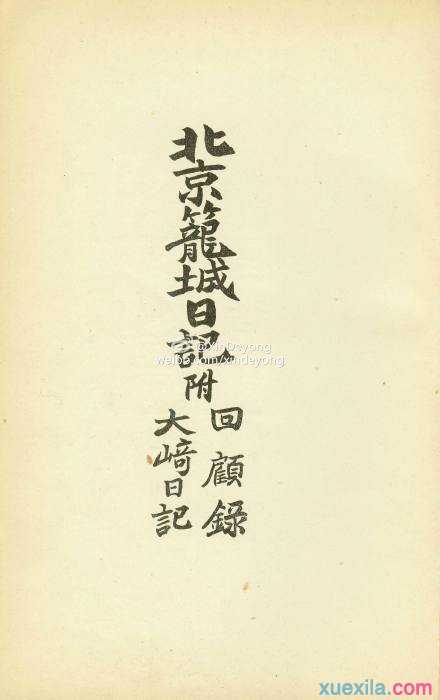 北京籠城日記
附
回顧録
大﨑日記
@XinDeyong
weibo.com/xindeyong
xuexila.com